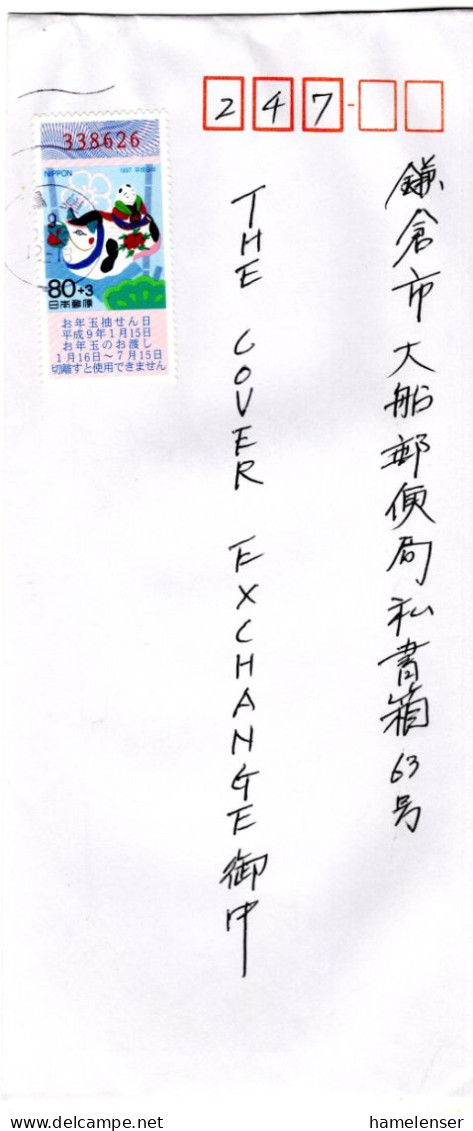 247-
鎌倉市大船郵便局私書箱63号
THE COVER EXCHANGE御中
338626
NIPPON 1997
80+3
日本郵便
お年玉抽せん日
平成9年1月15日
お年玉のお渡し
1月16日〜7月15日
切離すと使用できません
hamelenser
www.delcampe.net